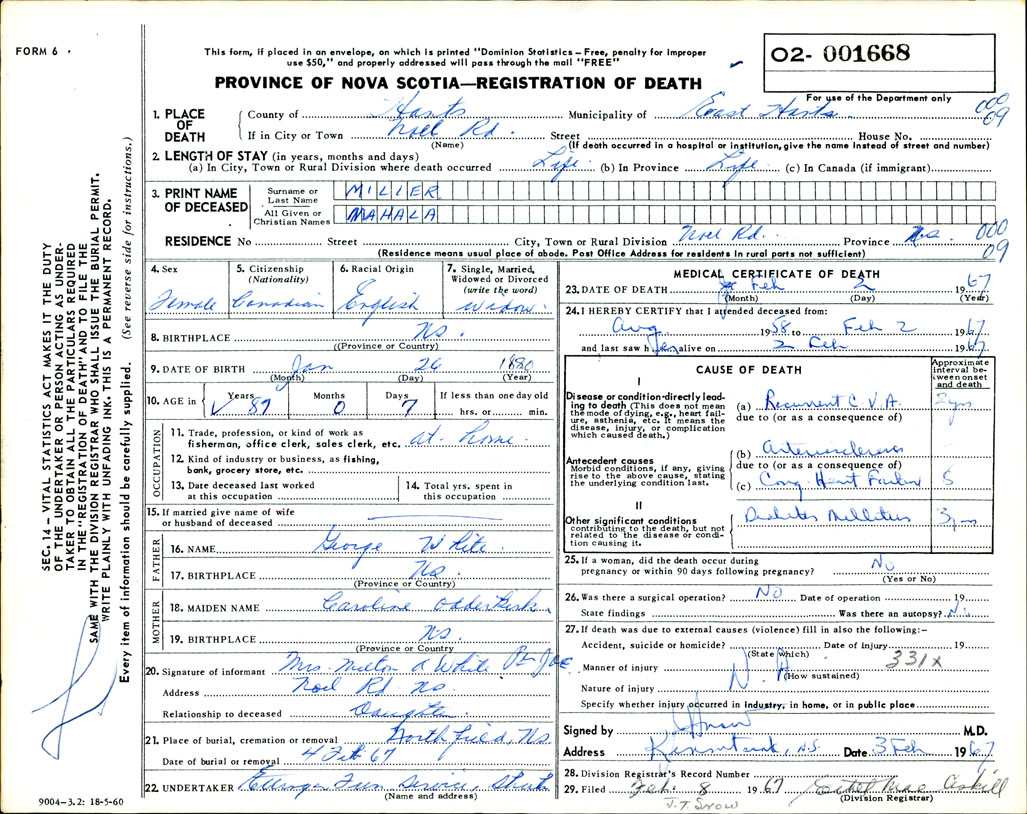 FORM 6
This form, if placed in an envelope, on which is printed "Dominion Statistics – Free, penalty for improper
use $50," and properly addressed will pass through the mail "FREE"
PROVINCE OF NOVA SCOTIA—REGISTRATION OF DEATH
02- 001668
For use of the Department only
000
09
1. PLACE OF DEATH
County of Hants Municipality of East Hants
If in City or Town Noel Rd. Street House No.
(Name) (If death occurred in a hospital or institution, give the name instead of street and number)
2. LENGTH OF STAY (in years, months and days)
(a) In City, Town or Rural Division where death occurred Life (b) In Province Life (c) In Canada (if immigrant)
3. PRINT NAME OF DECEASED
Surname or Last Name MILLER
All Given or Christian Names MAHALA
RESIDENCE No Street City, Town or Rural Division Noel Rd. Province N.S. 000
09
(Residence means usual place of abode. Post Office Address for residents in rural parts not sufficient)
4. Sex Female
5. Citizenship (Nationality) Canadian
6. Racial Origin English
7. Single, Married, Widowed or Divorced (write the word) widow.
8. BIRTHPLACE NS.
((Province or Country)
9. DATE OF BIRTH Jan 26 1880
(Month) (Day) (Year)
10. AGE in Years 87 Months 0 Days 7 If less than one day old
hrs. or min.
OCCUPATION
11. Trade, profession, or kind of work as
fisherman, office clerk, sales clerk, etc. at home
12. Kind of industry or business, as fishing,
bank, grocery store, etc.
13. Date deceased last worked
at this occupation
14. Total yrs. spent in
this occupation
15. If married give name of wife
or husband of deceased
FATHER
16. NAME George White
17. BIRTHPLACE NS.
(Province or Country)
MOTHER
18. MAIDEN NAME Caroline
19. BIRTHPLACE NS.
(Province or Country
20. Signature of informant Mrs. Milton A White
Address Noel Rd NS.
Relationship to deceased Daughter
21. Place of burial, cremation or removal Northfield, NS
Date of burial or removal 4 Feb 67
22. UNDERTAKER Ettinger Fun Service,
(Name and address)
MEDICAL CERTIFICATE OF DEATH
23. DATE OF DEATH Feb 2 67
(Month) (Day) (Year)
24. I HEREBY CERTIFY that I attended deceased from:
Aug 1958 to Feb 2 1967
and last saw h er alive on 2 Feb 1967
CAUSE OF DEATH
Approximate interval between onset and death
I
Disease or condition-directly leading to death (This does not mean the mode of dying, e.g., heart failure, asthenia, etc. It means the disease, injury, or complication which caused death.)
(a) Recurrent C.V.A. 2 yrs
due to (or as a consequence of)
Antecedent causes
Morbid conditions, if any, giving rise to the above cause, stating the underlying condition last.
(b) Arteriosclerosis
due to (or as a consequence of)
(c) Cong. Heart Failure 5
II
Other significant conditions
contributing to the death, but not related to the disease or condition causing it.
Diabetes Mellitus 3 yrs
25. If a woman, did the death occur during
pregnancy or within 90 days following pregnancy? No
(Yes or No)
26. Was there a surgical operation? No Date of operation 19
State findings Was there an autopsy? No
27. If death was due to external causes (violence) fill in also the following:–
Accident, suicide or homicide? Date of injury 19
(State which)
331X
Manner of injury
(How sustained)
Nature of injury
Specify whether injury occurred in industry, in home, or in public place
Signed by M.D.
Address N.S. Date 3 Feb 1967
28. Division Registrar's Record Number
29. Filed Feb. 8 1967 Ethel Mae
J.T. Snow (Division Registrar)
SEC. 14 – VITAL STATISTICS ACT MAKES IT THE DUTY
OF THE UNDERTAKER OR PERSON ACTING AS UNDER-
TAKER TO OBTAIN ALL THE PARTICULARS REQUIRED
IN THE "REGISTRATION OF DEATH" AND TO FILE THE
SAME WITH THE DIVISION REGISTRAR WHO SHALL ISSUE THE BURIAL PERMIT.
WRITE PLAINLY WITH UNFADING INK. THIS IS A PERMANENT RECORD.
Every item of information should be carefully supplied. (See reverse side for instructions.)
9004–3.2: 18-5-60